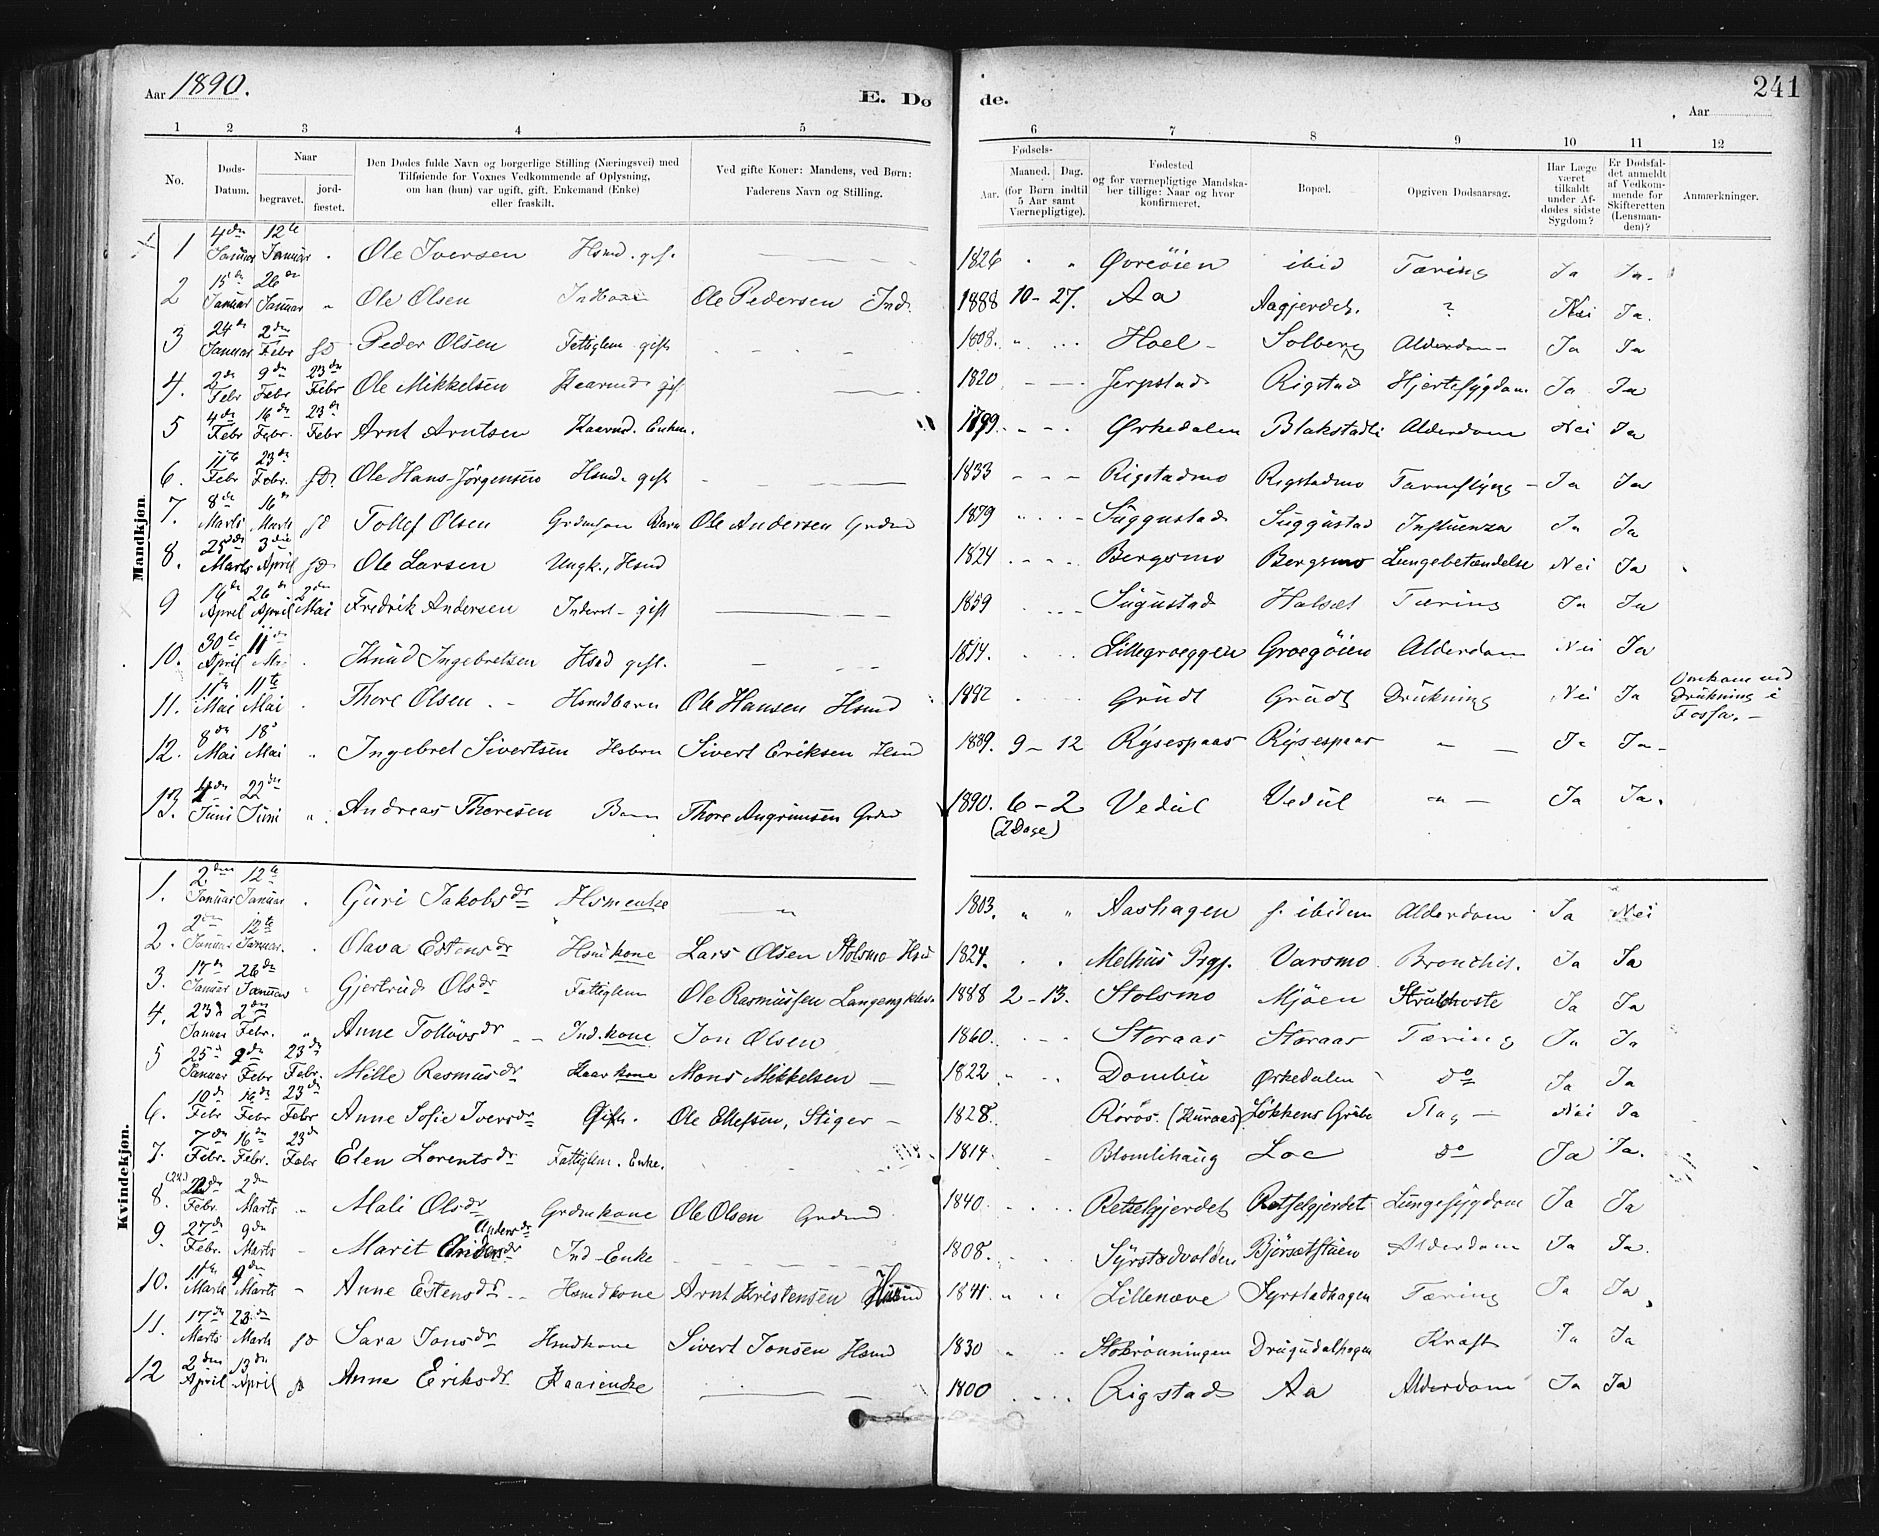 Aar 1890.
E. Dø de.
Aar
241
1 2 3 4 5 6 7 8 9 10 11 12
No.
Døds-Datum.
Naar
begravet.
jord-fæstet.
Den Dødes fulde Navn og borgerlige Stilling (Næringsvei) med
Tilføiende for Voxnes Vedkommende af Oplysning,
om han (hun) var ugift, gift, Enkemand (Enke)
eller fraskilt.
Ved gifte Koner: Mandens, ved Børn:
Faderens Navn og Stilling.
Fødsels-
Aar.
Maaned. Dag.
(for Børn indtil
5 Aar samt
Værnepligtige).
Fødested
og for værnepligtige Mandska-
ber tillige: Naar og hvor
konfirmeret.
Bopæl.
Opgiven Dødsaarsag.
Har Læge
været
tilkaldt
under Af-
dødes sidste
Sygdom?
Er Dødsfal-
det anmeldt
af Vedkom-
mende for
Skifteretten
(Lensman-
den)?
Anmærkninger.
Mandkjøn.
1 4de Januar 12te Januar " Ole Iversen Hsmd. gift 1826 " " Øvreøien ibid Tæring Ja Ja.
2 15de Januar 26de Januar " Ole Olsen Ole Pedersen Ind. 1888 10 - 27. Aa Aagjerdet. ? Nei Ja.
3 24de Januar 2den Febr Peder Olsen Fattiglem gift 1808. Hoel Solberg Alderdom Ja Ja
4. 2den Febr 9de Febr 23de Febr Ole Mikkelsen Kaarmd gift 1820 Jerpstad Rigstad Hjertesygdom Ja Ja
5 4de Febr 16de Febr. 23de Febr Arnt Arntsen Kaarmd. Enkem. 1799. Ørkedalen Blakstadli Alderdom Nei Ja
6. 11te Febr 23de Febr. Ole Hans Jørgensen Hsmd. gift 1833 Rigstadmo Rigstadmo Ja Ja
7. 8de Marts 16de Marts Tollef Olsen Grdmsøn Barn Ole Andersen Grdmd 1879 Suggustad Suggustad Influenza Ja Ja
8. 25de Marts 3die April Ole Larsen Ungk., Hsmd 1824 Bergsmo Bergsmo Lungebetændelse Nei Ja
9 14de April 26de April 2den Mai Fredrik Andersen Inderst - gift 1859 Sugustad Halset Tæring Ja Ja
10. 30te April 11te Mai Knud Ingebretsen Hsmd gift. 1814. Lillegroeggen Groegøien Alderdom Nei Ja
11. Mai 11te Mai Thore Olsen Hsmdbarn Ole Hansen Hsmd 1882 Grudt Grudt Drukning Nei Ja Omkom ved
Drukning i
Fossa. -
12. 8de Mai 18de Mai " Ingebret Sivertsen Hsbrn Sivert Eriksen Hsmd 1889. 9 - 12 Rysespaas Rysespaas " - Ja Ja
13. 4de Juni 22de Juni " Andreas Thoresen Barn Thore Angrimsen Grdmd 1890. 6 - 2 Vedul Vedul " - Ja Ja.
(2 Dage)
Kvindekjøn.
1. 2den Januar 12te Januar Guri Jakobsdr Hsmenke " 1803. " " Aashagen f. ibidem Alderdom Ja Nei
2. 2den Januar 12te Januar. Olava Estensdr Hsmkone Lars Olsen Stolsmo Hsmd 1824. Melhus Prgj. Varsmo Bronchit. Ja Ja
3. 17de Januar 26de Januar Gjertrud Olsdr Fattiglem Ole Rasmussen 1888 2 - 13. Stolsmo Mjøen Strubehoste Ja Ja
4. 23de Januar 2den Febr. " Anne Tollovsdr Ind.kone Jon Olsen 1860. Storaas Storaas Tæring Ja Ja
5 25de Januar 9de Febr 23de Febr. Mille Rasmusdr Kaarkone Mons Mikkelsen 1822 Dombu Ørkedalen do Ja Ja
6. 10de Febr 16de Febr 23de Febr Anne Sofie Iversdr Gift. Ole Ellefsen, Stiger 1828. Røros. (Kuraas). Løkkens Grube Slag Nei Ja
7. 7de Febr. 16de Febr. 23de Febr Elen Lorentsdr Fattiglem. Enke. 1814 Blomlihaug Loe do Ja Ja.
8. (22) Febr. 2den Marts Mali Olsdr Grdmkone Ole Olsen Grdmd 1840. Retselgjerdet Retselgjerdet Lungesygdom Ja Ja
9. 27de Febr. 9de Marts Marit Andersdr Ind-Enke 1808. Syrstadvolden Bjørsetstuen Alderdom Ja Ja.
10. Marts 9de Marts Anne Estensdr Hsmdkone Arnt Kristensen Hsmd 1841 Lillenæve Syrstadhagen Tæring Ja Ja
11. 17de Marts 23de Marts Sara Jonsdr Hsmdkone Sivert Jonsen Hsmd 1830 Stobrønningen Drugudalhagen Kræft Ja Ja
12 2den April 13de April Anne Eriksdr. Kaarenke 1800 Rigstad Aa Alderdom Ja Ja